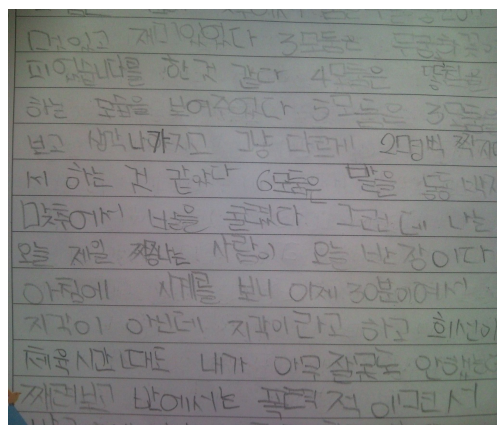 멋있고 재미있었다 3모둠은 무궁화 꽃이
피었습니다를 한 것 같다 4모둠은
하는 모습을 보여주었다 5모둠은 3모둠
보고 생각나가지고 그냥 다르게 2명씩 짝지
서 하는 것 같았다 6모둠은 발을 동
맞추어서 춤을 그런데 나는
오늘 제일 짜증나는 사람이 오늘 반장이다
아침에 시계를 보니 이제 30분이여서
지각이 아닌데 지각이라고 하고
체육시간때도 내가 아무 잘못도 안했는데
째려보고 반에서는 폭력적 이면서